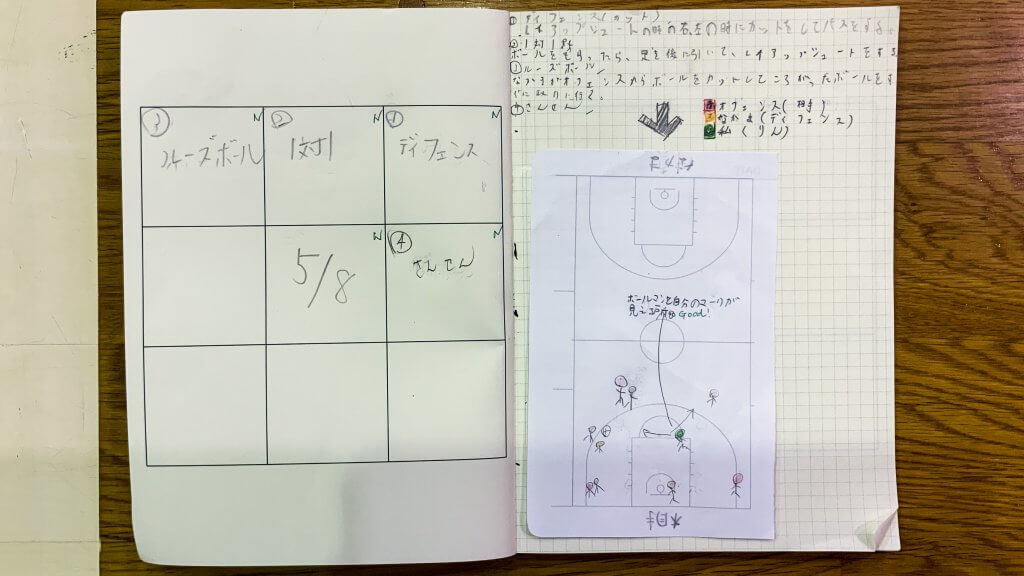 ③ N
ルーズボール
② N
1対1
① N
ディフェンス
N
5/8
④ N
さんせん
① ディフェンス(カット)
レイアップシュートの時の右左の時にカットをしてパスをする。
② 1対1
ボールをもらったら、足を後に引いて、レイアップシュートをする
③ ルーズボール
なかまがオフェンスからボールをカットしてころがったボールをす
ぐに取りに行く。
④ さんせん
オフェンス(相手)
なかま(ディフェンス)
私(りん)
ボールマンと自分のマークが
Good!